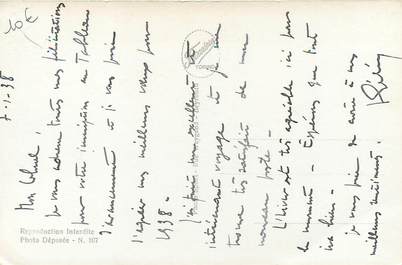 50 €
7-1-38
Mon Colonel,
je vous adresse toutes mes félicitations
pour votre inscription au Tableau
d'avancement et je vous prie
d'agréer mes meilleurs vœux pour
1938.
J'ai fait un excellent et
intéressant voyage et je me
trouve très satisfait de mon
nouveau poste.
L'hiver est très agréable ici pour
le moment - Espérons que tout
ira bien.
je vous prie de croire à mes
meilleurs sentiments.
Reproduction Interdite
Photo Déposée - N. 107